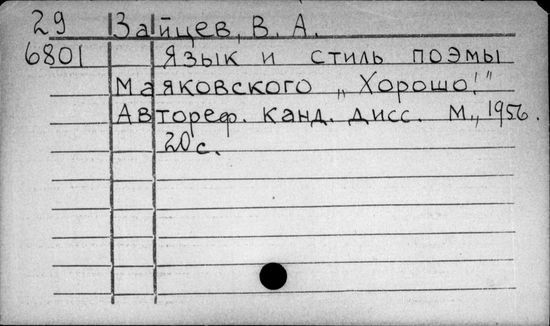 29 Зайцев, В. А.
6801 Язык и стиль поэмы
Маяковского „Хорошо!"
Автореф. канд. дисс. М., 1956.
20 с.